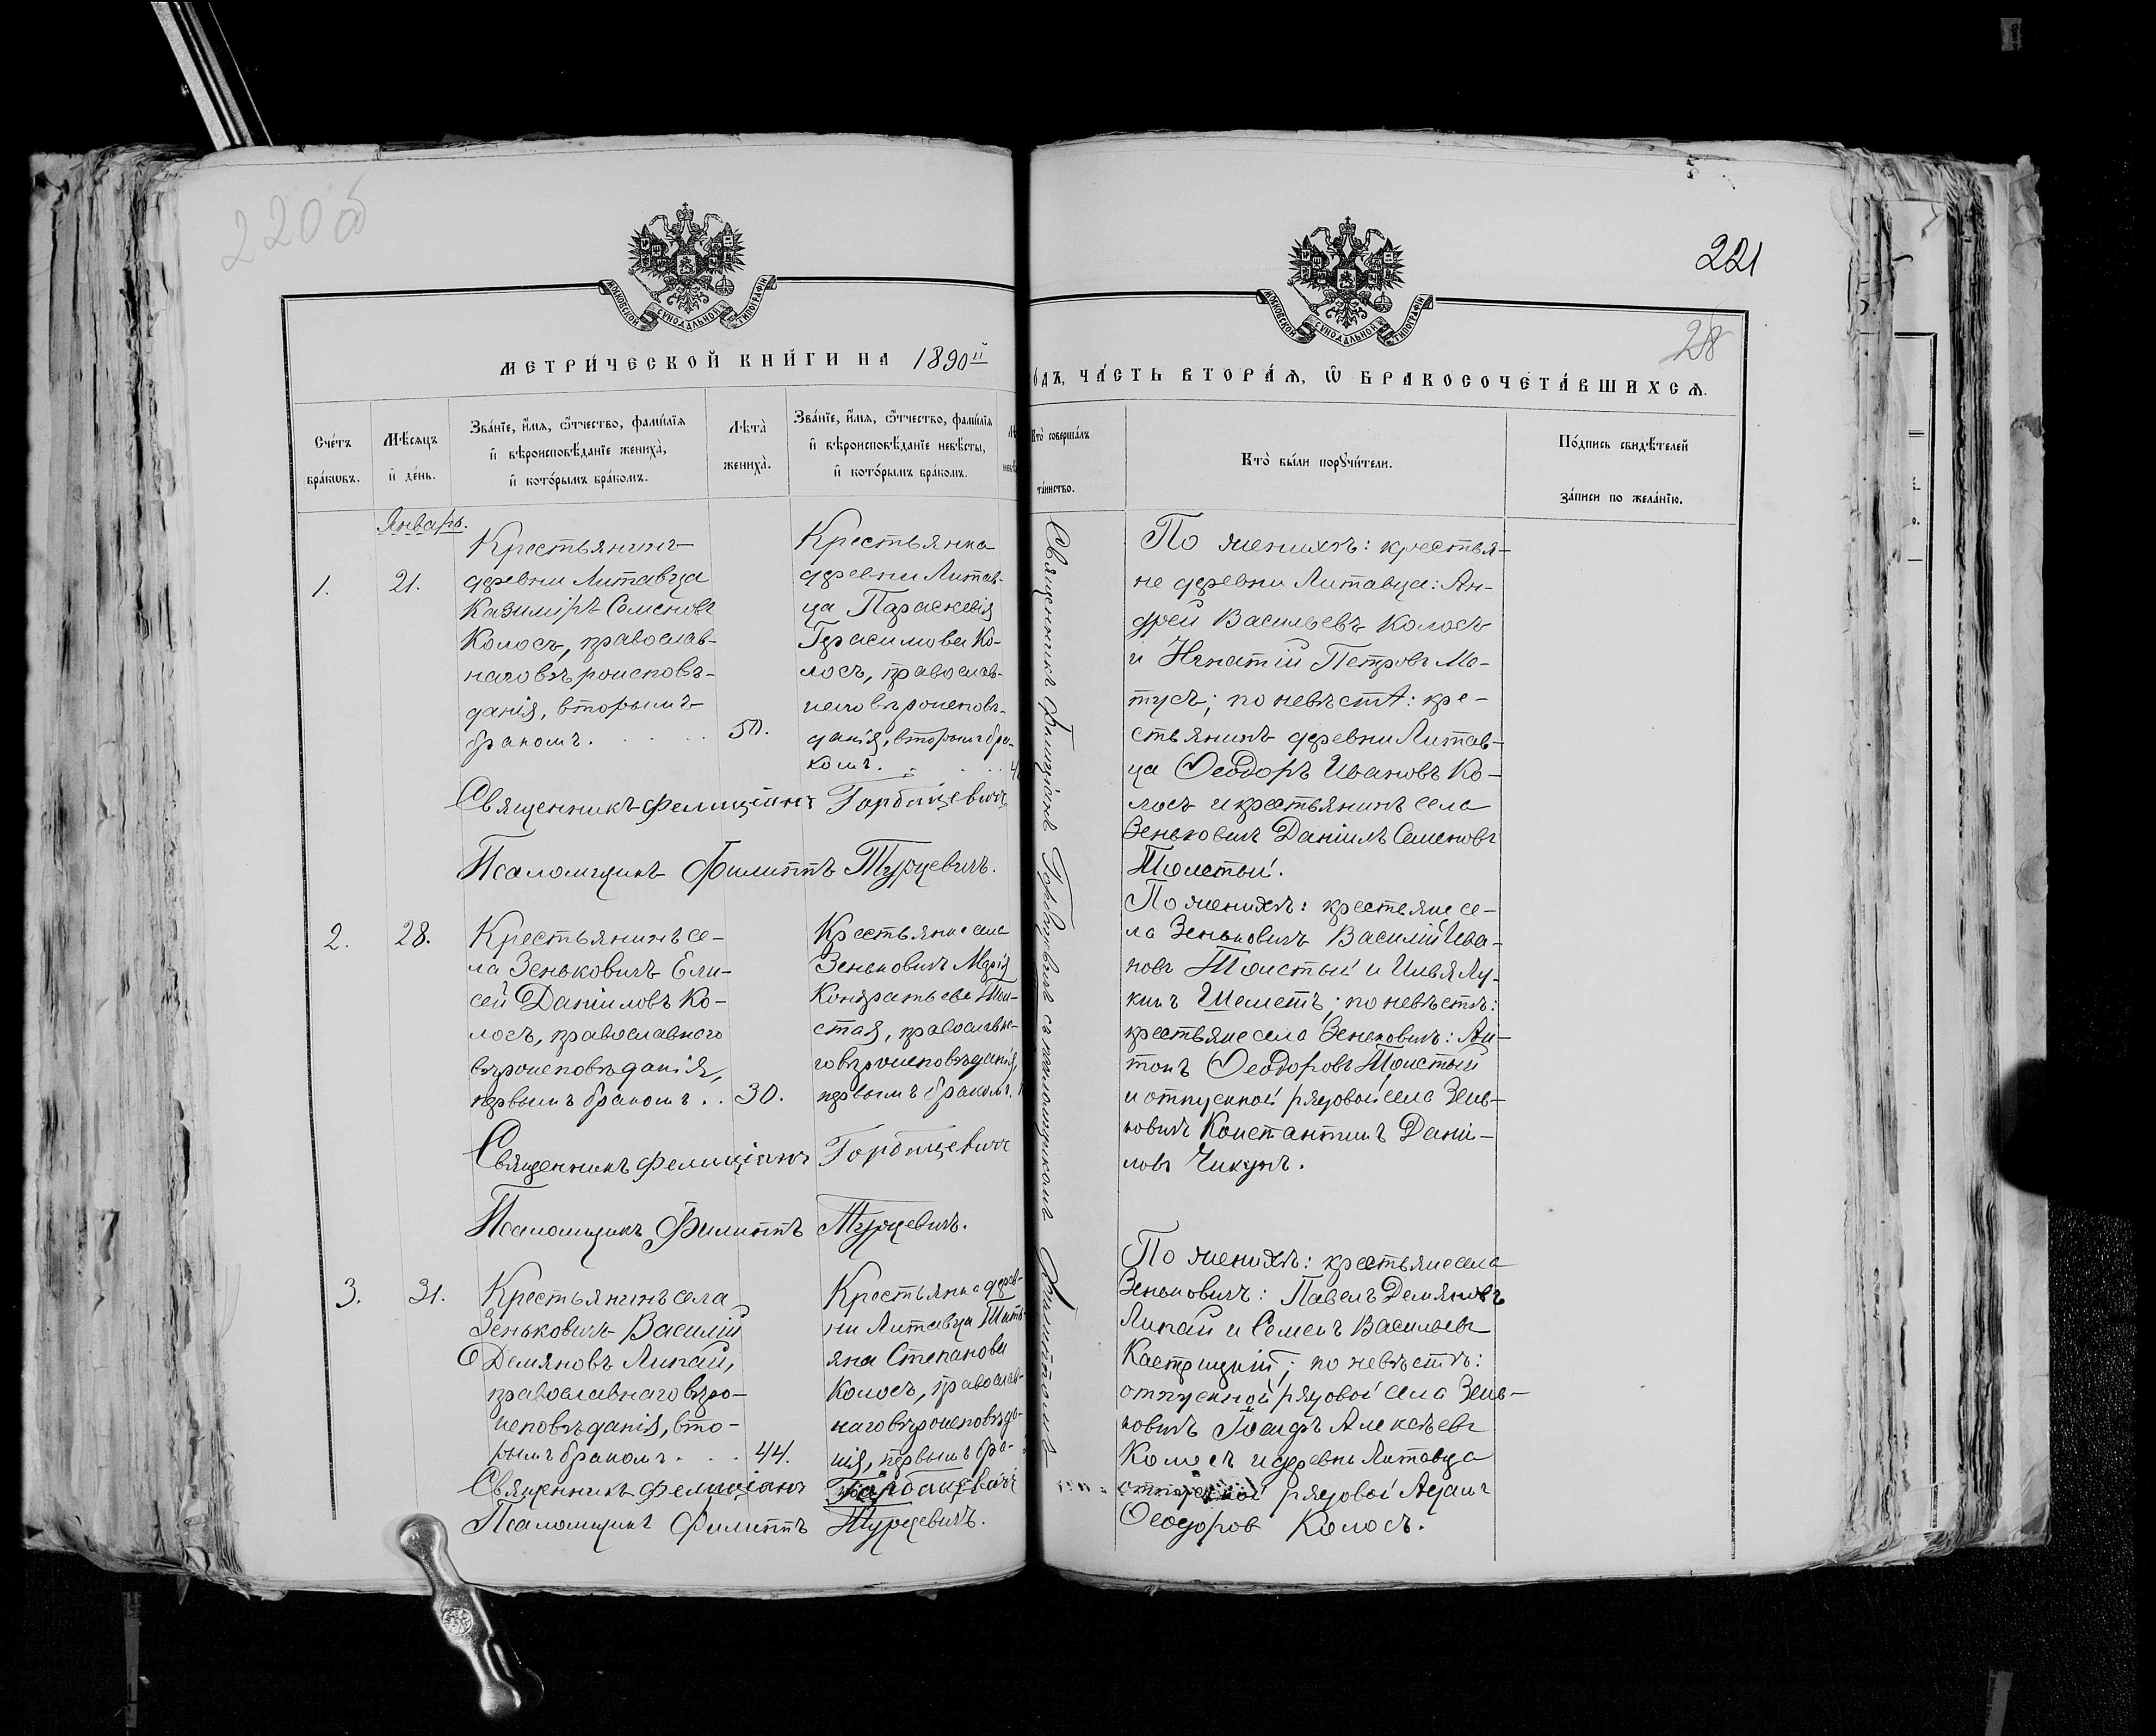 220 об
221
28
МОСКОВСКОЙ СУНОДАЛЬНОЙ ТИПОГРАФІИ
МОСКОВСКОЙ СУНОДАЛЬНОЙ ТИПОГРАФІИ
МЕТРИ́ЧЕСКОЙ КНИ́ГИ НА 1890й
ОДЪ, ЧА́СТЬ ВТОРА́Я, Ѽ БРАКОСОЧЕТА́ВШИХСЯ.
Сче́тъ
бра́кѡвъ.
Мѣ́сяцъ
и҆ де́нь.
Зва́нїе, и҆́мя, ѻ҆́тчество, фами́лїя
и҆ вѣроисповѣ́данїе жениха̀,
и҆ кото́рымъ бра́комъ.
Лѣта̀
жениха̀.
Зва́нїе, и҆́мя, ѻ҆́тчество, фами́лїя
и҆ вѣроисповѣ́данїе невѣ́сты,
и҆ кото́рымъ бра́комъ.
Кто̀ соверша́лъ
та́инство.
Кто̀ бы́ли порꙋчи́тели.
По́дпись свидѣ́телей
за́писи по жела́нїю.
Январь.
1.
21.
Крестьянинъ
деревни Литавца
Казиміръ Семеновъ
Колосъ, православ-
наго вѣроисповѣ-
данія, вторымъ
бракомъ. . . . . . 50.
Крестьянка
деревни Литав-
ца Параскевія
Герасимова Ко-
лосъ, православ-
наго вѣроисповѣ-
данія, вторымъ бра-
комъ. . . .
Священникъ Фелиціанъ Горбацевичъ
Псаломщикъ Филиппъ Турцевичъ.
2.
28.
Крестьянинъ се-
ла Зеньковичъ Ели-
сей Даніиловъ Ко-
лосъ, православнаго
вѣроисповѣданія,
первымъ бракомъ . . 30.
Крестьянка села
Зеньковичъ Марія
Кондратьева Тол-
стая, православна-
го вѣроисповѣданія,
первымъ бракомъ.
Священникъ Фелиціанъ Горбацевичъ
Псаломщикъ Филиппъ Турцевичъ.
3.
31.
Крестьянинъ села
Зеньковичъ Василій
Демяновъ Липай,
православнаго вѣро-
исповѣданія, вто-
рымъ бракомъ . . . 44.
Крестьянка дерев-
ни Литавца Тать-
яна Степанова
Колосъ, православ-
наго вѣроисповѣда-
нія, первымъ бра-
Священникъ Фелиціанъ Горбацевичъ
Псаломщикъ Филиппъ Турцевичъ.
Священникъ Фелиціанъ Горбацевичъ съ псаломщикомъ Филиппомъ
По женихѣ: крестья-
не деревни Литавца: Ан-
дрей Васильевъ Колосъ
и Игнатій Петровъ Ма-
тусъ; по невѣстѣ: кре-
стьянинъ деревни Литав-
ца Ѳеодоръ Ивановъ Ко-
лосъ и крестьянинъ села
Зеньковичъ Даніилъ Семеновъ
Толстый.
По женихѣ: крестьяне се-
ла Зеньковичъ Василій Ива-
новъ Толстый и Илья Лу-
кинъ Шеметъ; по невѣстѣ:
крестьяне села Зеньковичъ: Ан-
тонъ Ѳеодоровъ Толстый
и отпускной рядовой села Зень-
ковичъ Константинъ Дані-
ловъ Чикунъ.
По женихѣ: крестьяне села
Зеньковичъ: Павелъ Демяновъ
Липай и Семенъ Васильевъ
Кастрицкій; по невѣстѣ:
отпускной рядовой села Зень-
ковичъ Алексѣевъ
Колосъ и деревни Литавца
отпускной рядовой Адамъ
Ѳеодоров Колосъ.